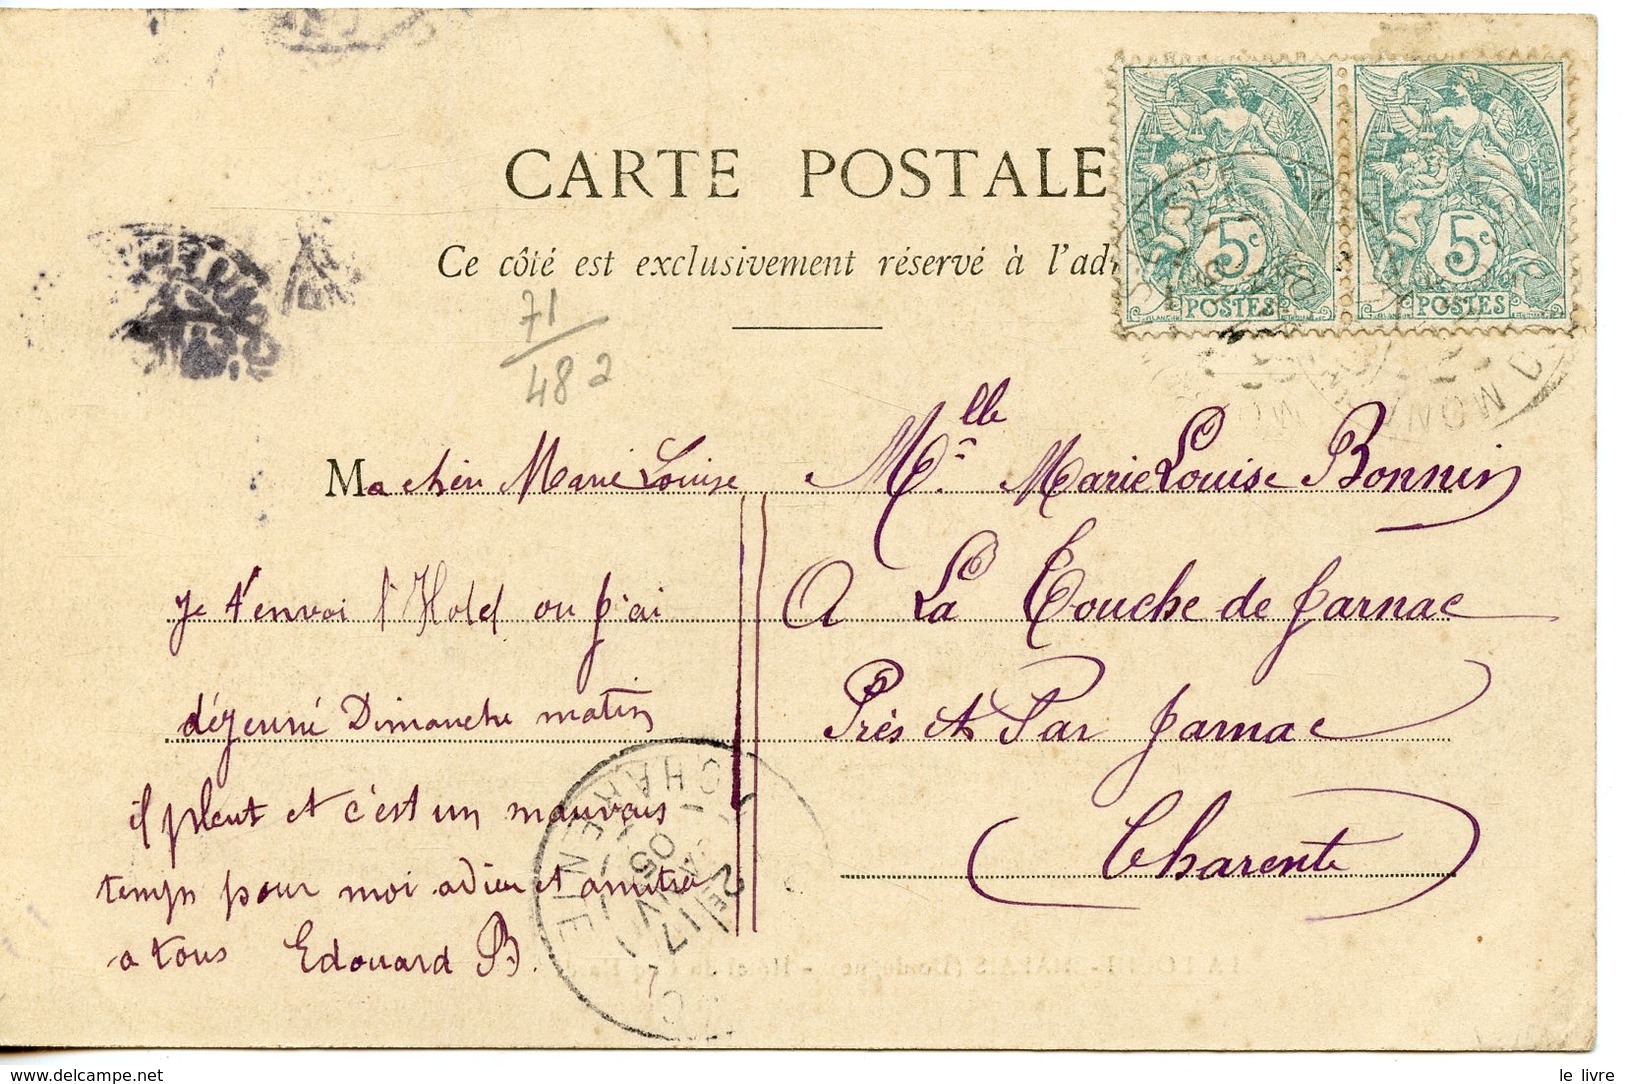 CARTE POSTALE
Ce côté est exclusivement réservé à l'ad
5c
POSTES
5c
POSTES
71
48 2
Ma cheri Marie Louise
je t'envoi l'Hotel ou j'ai
déjeuné Dimanche matin
il pleut et c'est un mauvais
temps pour moi adieu et amitié
a tous Edouard B.
Mlle Marie Louise Bonnin
A La Touche de Jarnac
Près et Par Jarnac
Charente
CHARENTE
2E/17
05
delcampe.net
le livre